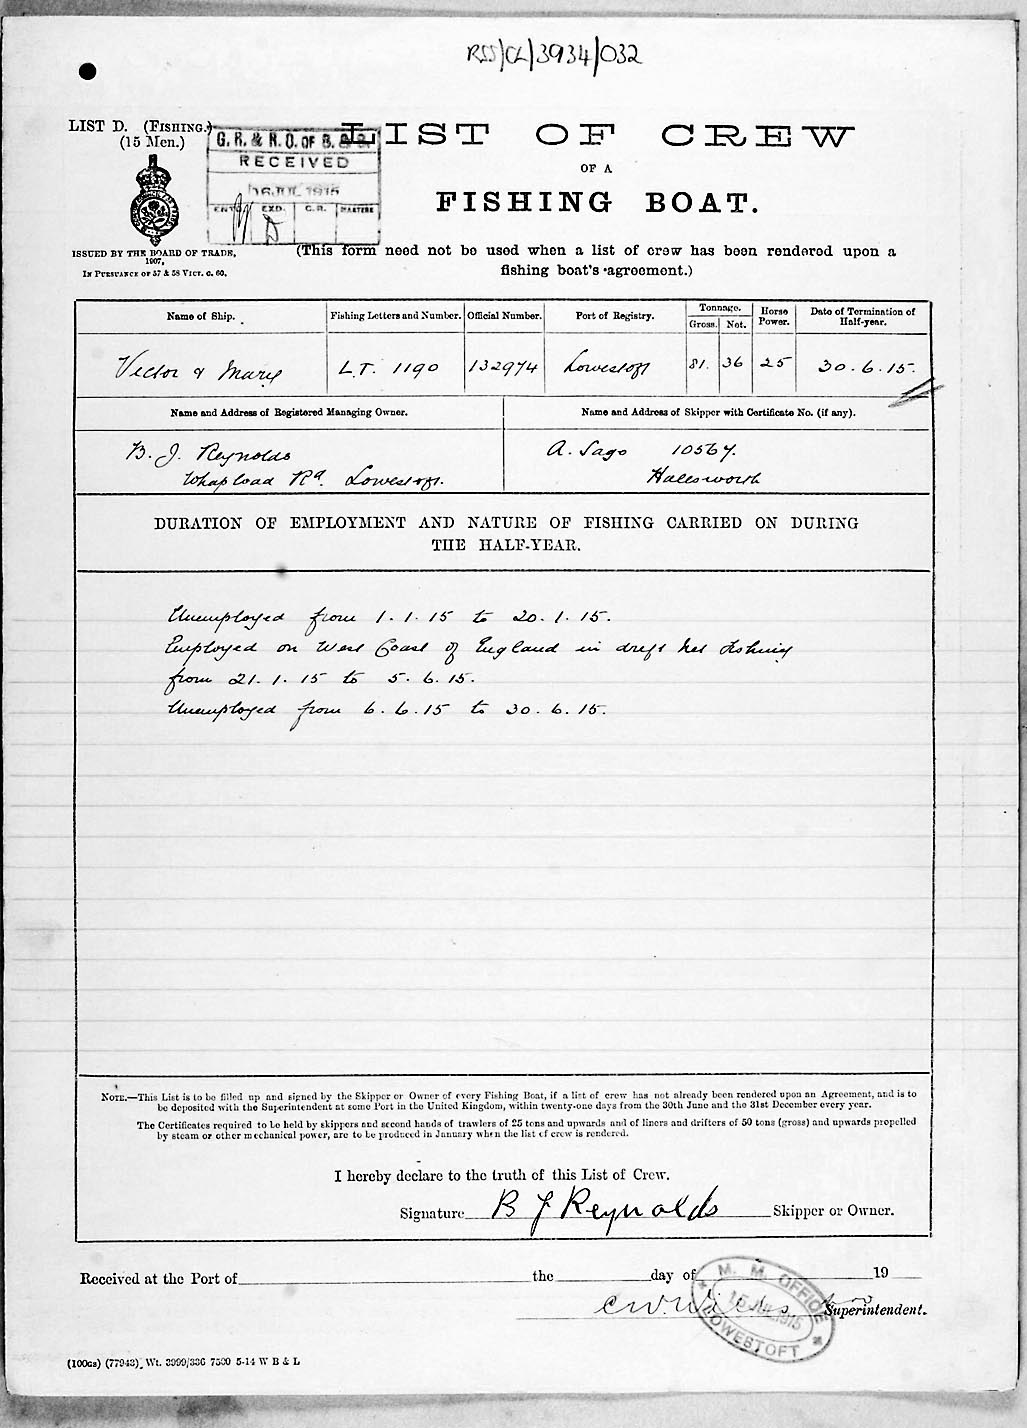 RSS/CL/3934/032
LIST D. (FISHING.)
(15 Men.)
G. R. & R. O. OF S. & S.
RECEIVED
16 JUL 1915
EXD. C.R. MASTERS
LIST OF CREW
OF A
FISHING BOAT.
ISSUED BY THE BOARD OF TRADE,
1907,
IN PURSUANCE OF 57 & 58 VICT. C. 60.
(This form need not be used when a list of crew has been rendered upon a
fishing boat's agreement.)
Name of Ship. Fishing Letters and Number. Official Number. Port of Registry. Tonnage. Gross. Net. Horse Power. Date of Termination of Half-year.
Victor & Mary L.T. 1190 132974 Lowestoft 81. 36 25 30.6.15.
Name and Address of Registered Managing Owner. Name and Address of Skipper with Certificate No. (if any).
B. J. Reynolds A. Sago 10567.
Whapload Rd. Lowestoft. Halesworth
DURATION OF EMPLOYMENT AND NATURE OF FISHING CARRIED ON DURING
THE HALF-YEAR.
Unemployed from 1.1.15 to 20.1.15.
Employed on West Coast of England in drift net fishing
from 21.1.15 to 5.6.15.
Unemployed from 6.6.15 to 30.6.15.
NOTE.—This List is to be filled up and signed by the Skipper or Owner of every Fishing Boat, if a list of crew has not already been rendered upon an Agreement, and is to
be deposited with the Superintendent at some Port in the United Kingdom, within twenty-one days from the 30th June and the 31st December every year.
The Certificates required to be held by skippers and second hands of trawlers of 25 tons and upwards and of liners and drifters of 50 tons (gross) and upwards propelled
by steam or other mechanical power, are to be produced in January when the list of crew is rendered.
I hereby declare to the truth of this List of Crew.
Signature B J Reynolds Skipper or Owner.
Received at the Port of the day of 19
M. M. OFFICE
15 JUL 1915
LOWESTOFT
Superintendent.
(100gs) (77943). Wt. 3999/336 7500 5-14 W B & L